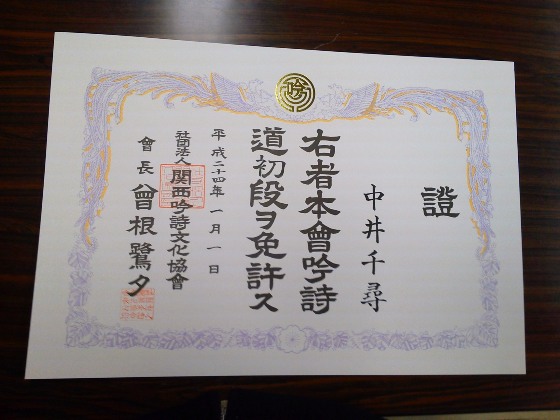 吟
證
中井千尋
右者本會吟詩
道初段ヲ免許ス
平成二十四年 一月一日
社団法人 関西吟詩文化協會
會長 曾根鷺夕